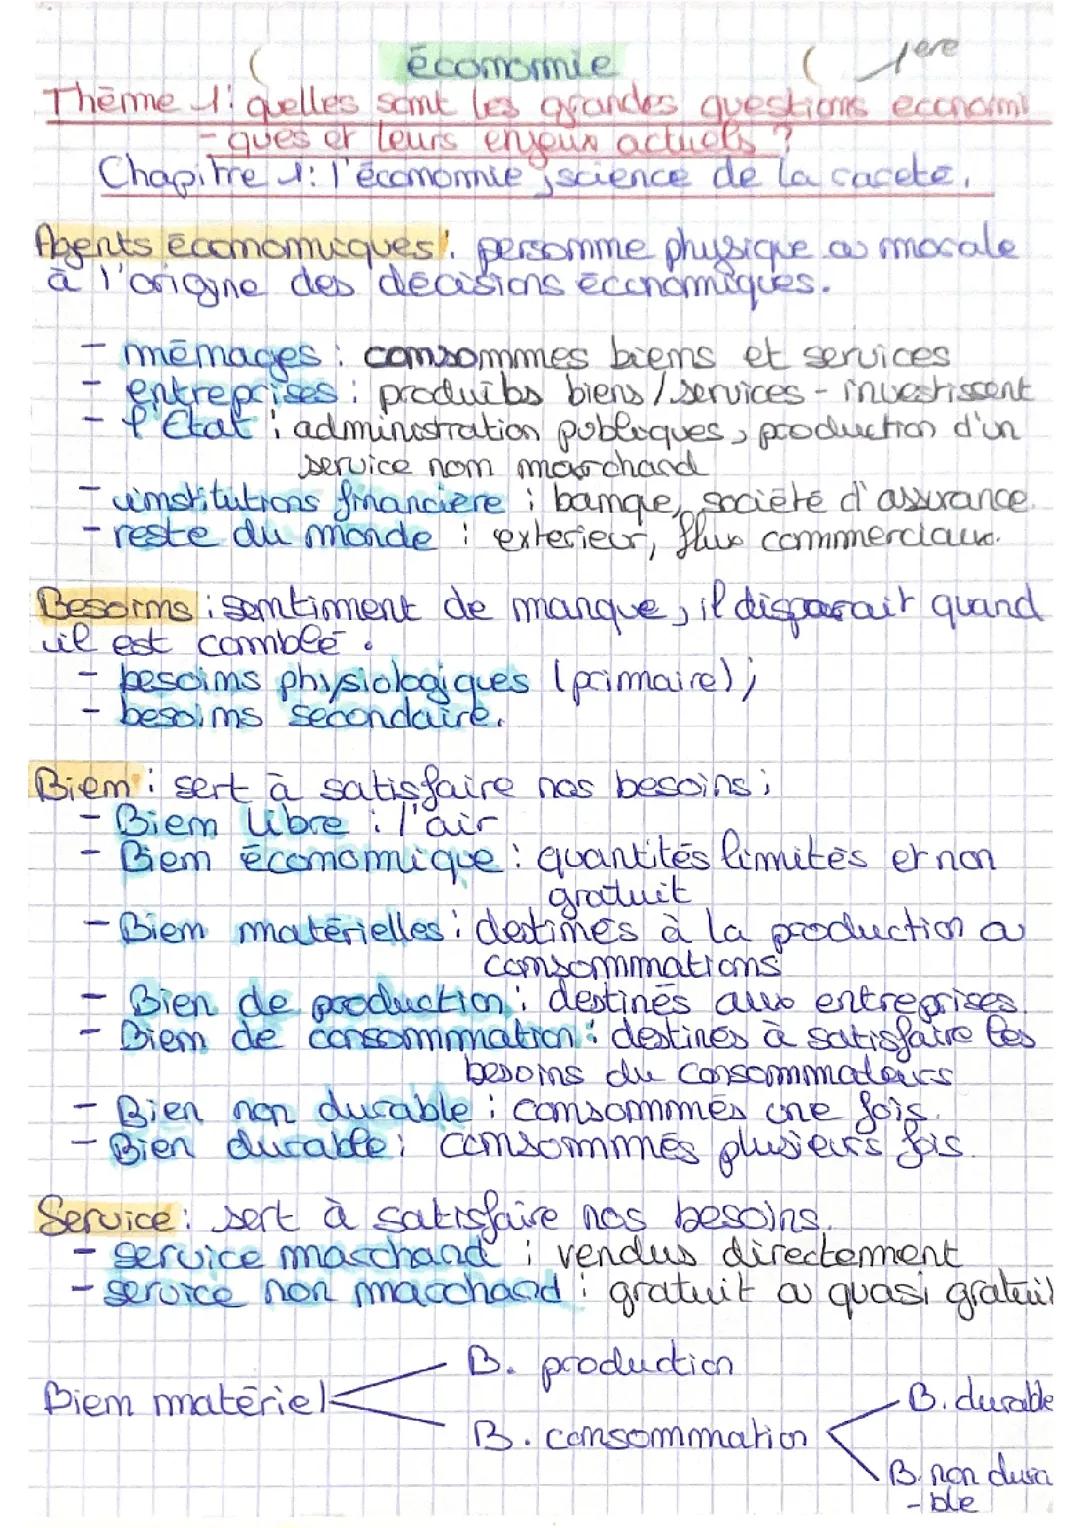 économie
1ere
Thème 1: quelles sont les grandes questions economi
-ques et leurs enjeux actuels ?
Chapitre 1: l'économie, science de la rareté.
Agents économiques: personne physique ou morale
à l'origine des décisions économiques.
- ménages : consommes biens et services
- entreprises : produits biens / services - investissent
- l'Etat : administration publiques, production d'un
service non marchand
- institutions financière : banque, société d'assurance.
- reste du monde : exterieur, flux commerciaux.
Besoins : sentiment de manque, il disparait quand
il est comblé.
- besoins physiologiques (primaire) ;
- besoins secondaire.
Bien : sert à satisfaire nos besoins ;
- Bien libre : l'air
- Bien économique : quantités limités et non
gratuit
- Bien matérielles : destinés à la production ou
consommations
- Bien de production : destinés aux entreprises.
- Bien de consommation : destinés à satisfaire les
besoins du consommateurs
- Bien non durable : consommés une fois.
- Bien durable : consommés plusieurs fois.
Service : sert à satisfaire nos besoins.
- service marchand : vendus directement
- service non marchand : gratuit ou quasi gratuit
B. production
Bien matériel
B. durable
B. consommation
B. non dura
-ble